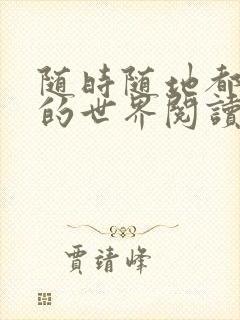 随時随地都
的世界閱讀
賈靖峰